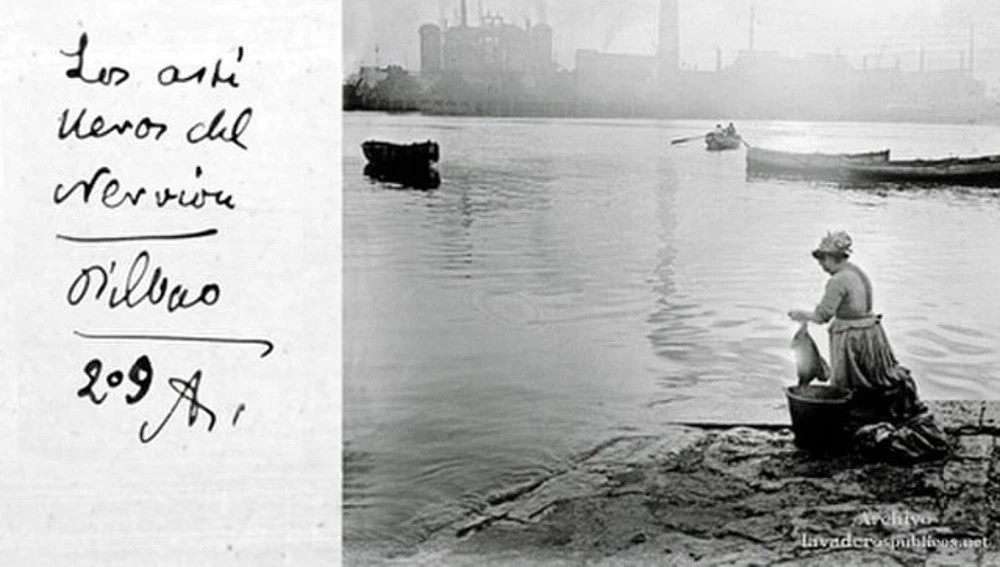 Los asti
lleros del
Nervión
Bilbao
209 A.
Archivo
lavaderospublicos.net